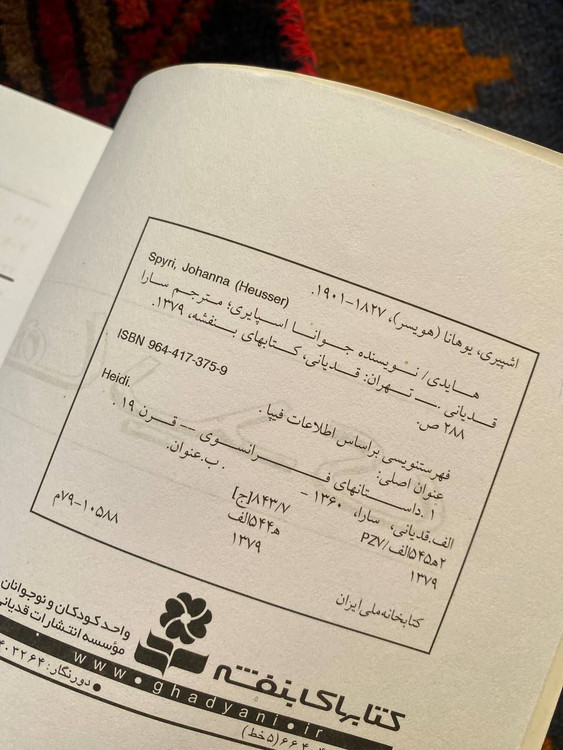 اشپیری، یوهانا (هویسر)، ۱۸۲۷-۱۹۰۱.
Spyri, Johanna (Heusser)
هایدی/ نویسنده جوانا اسپایری؛ مترجم سارا
قدیانی .__ تهران: قدیانی، کتابهای بنفشه، ۱۳۷۹.
۲۸۸ ص.
ISBN 964-417-375-9
فهرستنویسی براساس اطلاعات فیپا.
عنوان اصلی:
Heidi.
۱.داستانهای فرانسوی __ قرن ۱۹.
الف.قدیانی، سارا، ۱۳۶۰ - . ب.عنوان.
۲ه۵۴۵الف/PZ۷
۸۴۳/۷[ج]
ه۵۴۴الف
۱۳۷۹
۱۳۷۹
۷۹-۱۰۵۸۸م
کتابخانه ملی ایران
کتابهای بنفشه
واحد کودکان و نوجوانان
مؤسسه انتشارات قدیانی
www.ghadyani.ir
دورنگار: ۴۰۳۲۶۴
(۵خط)